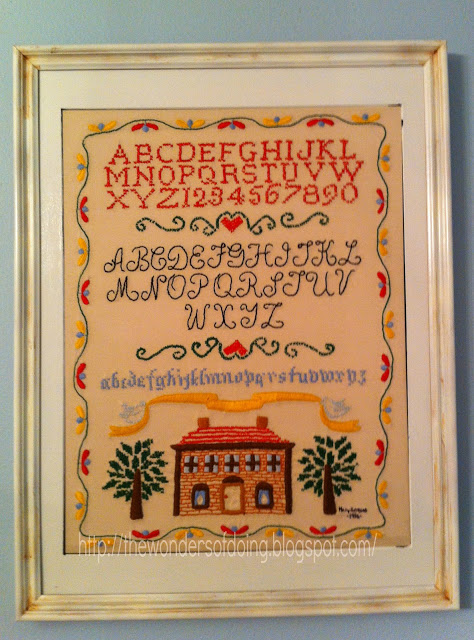 ABCDEFGHIJKL
MNOPQRSTUVW
XYZ1234567890
ABCDEFGHIJKL
MNOPQRSTUV
WXYZ
abcdefghijklmnopqrstuvwxyz
http://thewondersofdoing.blogspot.com/